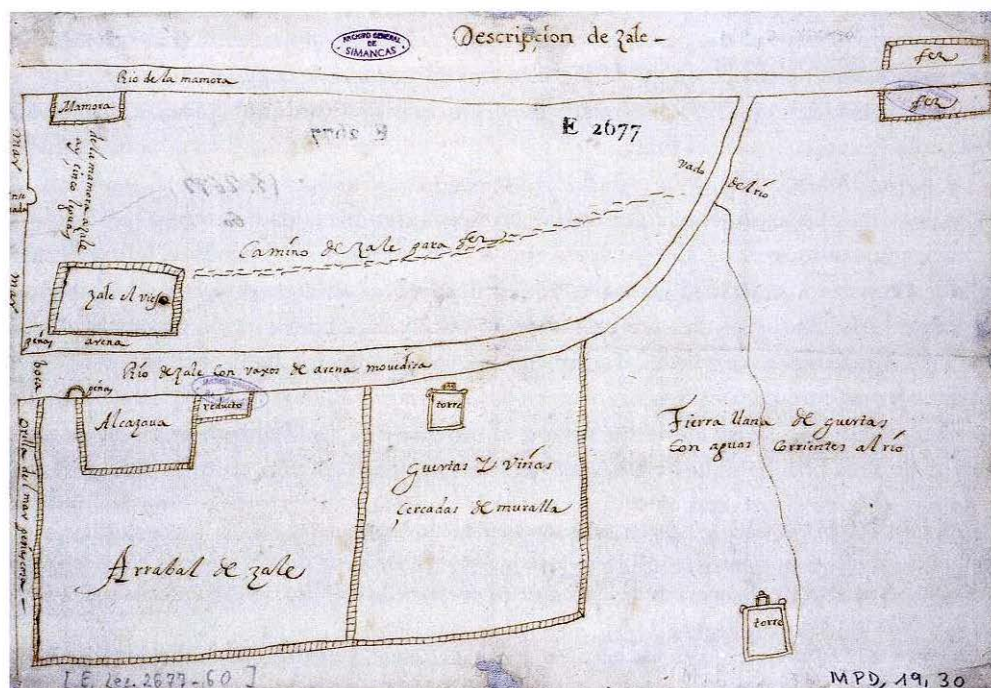 ARCHIVO GENERAL
DE
SIMANCAS
Descripcion de zale
fez
Rio de la mamora
fez
Mamora
E 2677
mar
de la mamora a zale
ay cinco leguas
vado
del rio
Camino de zale para fez
mar
zale el viejo
peñas arena
Rio de zale con vaxos de arena movediza
boca
peñas
reducto
torre
Alcazava
Tierra llana de guertas
con aguas corrientes al rio
Guertas y viñas
cercadas de muralla
Orilla del mar
Arrabal de zale
torre
[E. Leg. 2677-60]
MPD, 19, 30